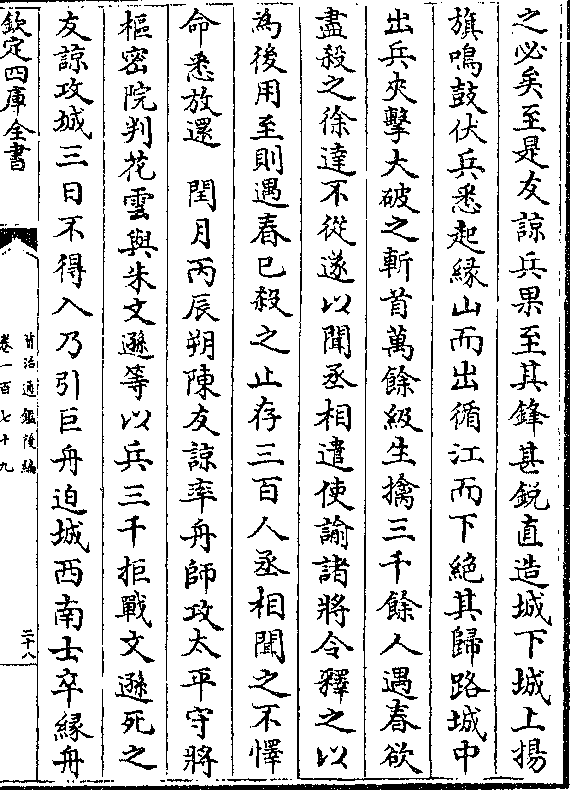 之必矣至是友諒兵果至其鋒甚銳直造城下城上揚
旗鳴鼓伏兵悉起緣山而出循江而下絶其歸路城中
出兵夾擊大破之斬首萬餘級生擒三千餘人遇春欲
盡殺之徐達不從遂以聞丞相遣使諭諸將令釋之以
為後用至則遇春已殺之止存三百人丞相聞之不懌
命悉放還　閏月丙辰朔陳友諒率舟師攻太平守將
樞密院判花雲與朱文遜等以兵三千拒戰文遜死之
友諒攻城三日不得入乃引巨舟迫城西南士卒緣舟
欽定四庫全書
資治通鑑後編
卷一百七十九
二十八